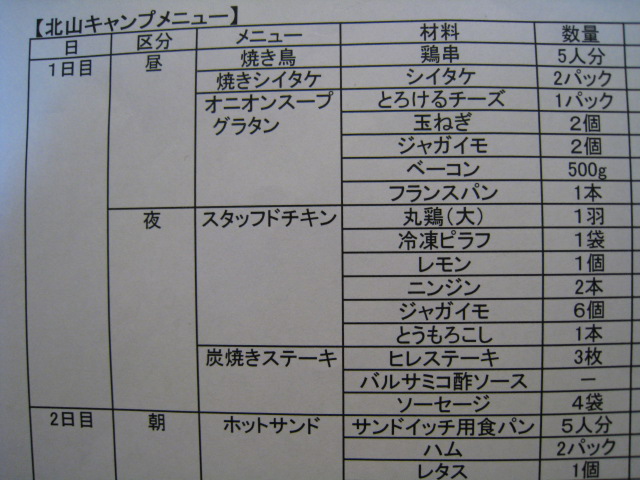 【北山キャンプメニュー】
日 区分 メニュー 材料 数量
1日目 昼 焼き鳥 鶏串 5人分
焼きシイタケ シイタケ 2パック
オニオンスープ とろけるチーズ 1パック
グラタン 玉ねぎ 2個
ジャガイモ 2個
ベーコン 500g
フランスパン 1本
夜 スタッフドチキン 丸鶏(大) 1羽
冷凍ピラフ 1袋
レモン 1個
ニンジン 2本
ジャガイモ 6個
とうもろこし 1本
炭焼きステーキ ヒレステーキ 3枚
バルサミコ酢ソース ー
ソーセージ 4袋
2日目 朝 ホットサンド サンドイッチ用食パン 5人分
ハム 2パック
レタス 1個